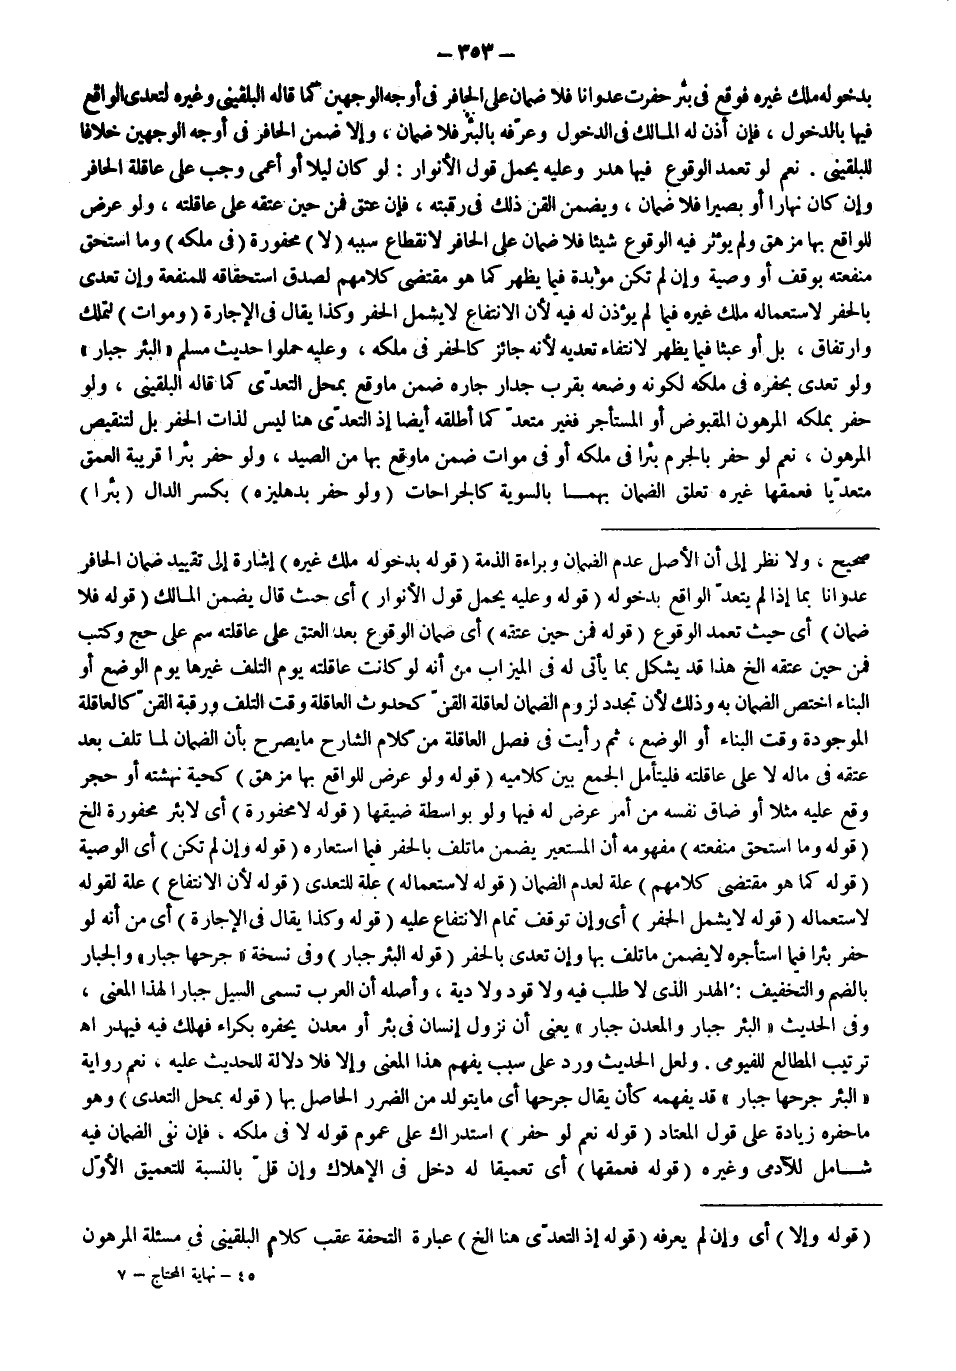 – ٣٥٣ –
بدخوله ملك غيره فوقع فى بئر حفرت عدوانا فلا ضمان على الحافر فى أوجه الوجهين كما قاله البلقينى وغيره لتعدى الواقع
فيها بالدخول ، فإن أذن له المالك فى الدخول وعرّفه بالبئر فلا ضمان ، وإلا ضمن الحافر فى أوجه الوجهين خلافا
للبلقينى . نعم لو تعمد الوقوع فيها هدر وعليه يحمل قول الأنوار : لو كان ليلا أو أعمى وجب على عاقلة الحافر
وإن كان نهارا أو بصيرا فلا ضمان ، ويضمن القن ذلك فى رقبته ، فإن عتق فمن حين عتقه على عاقلته ، ولو عرض
للواقع بها مزهق ولم يؤثر فيه الوقوع شيئا فلا ضمان على الحافر لانقطاع سببه ( لا ) محفورة ( فى ملكه ) وما استحق
منفعته بوقف أو وصية وإن لم تكن مؤبدة فيما يظهر كما هو مقتضى كلامهم لصدق استحقاقه للمنفعة وإن تعدى
بالحفر لاستعماله ملك غيره فيما لم يؤذن له فيه لأن الانتفاع لايشمل الحفر وكذا يقال فى الإجارة ( وموات ) لتملك
وارتفاق ، بل أو عبثا فيما يظهر لانتفاء تعديه لأنه جائز كالحفر فى ملكه ، وعليه حملوا حديث مسلم « البئر جبار »
ولو تعدى بحفره فى ملكه لكونه وضعه بقرب جدار جاره ضمن ماوقع بمحل التعدّى كما قاله البلقينى ، ولو
حفر بملكه المرهون المقبوض أو المستأجر فغير متعدّ كما أطلقه أيضا إذ التعدّى هنا ليس لذات الحفر بل لتنقيص
المرهون ، نعم لو حفر بالحرم بئرا فى ملكه أو فى موات ضمن ماوقع بها من الصيد ، ولو حفر بئرا قريبة العمق
متعدّيا فعمقها غيره تعلق الضمان بهمــا بالسوية كالجراحات ( ولو حفر بدهليزه ) بكسر الدال ( بئرا )
صحيح ، ولا نظر إلى أن الأصل عدم الضمان وبراءة الذمة ( قوله بدخوله ملك غيره ) إشارة إلى تقييد ضمان الحافر
عدوانا بما إذا لم يتعدّ الواقع بدخوله ( قوله وعليه يحمل قول الأنوار ) أى حيث قال يضمن المالك ( قوله فلا
ضمان ) أى حيث تعمد الوقوع ( قوله فمن حين عتقه ) أى ضمان الوقوع بعد العتق على عاقلته سم على حج وكتب
فمن حين عتقه الخ هذا قد يشكل بما يأتى له فى الميزاب من أنه لو كانت عاقلته يوم التلف غيرها يوم الوضع أو
البناء اختص الضمان به وذلك لأن تجدد لزوم الضمان لعاقلة القنّ كحدوث العاقلة وقت التلف ورقبة القنّ كالعاقلة
الموجودة وقت البناء أو الوضع ، ثم رأيت فى فصل العاقلة من كلام الشارح مايصرح بأن الضمان لما تلف بعد
عتقه فى ماله لا على عاقلته فليتأمل الجمع بين كلاميه ( قوله ولو عرض للواقع بها مزهق ) كحية نهشته أو حجر
وقع عليه مثلا أو ضاق نفسه من أمر عرض له فيها ولو بواسطة ضيقها ( قوله لامحفورة ) أى لابئر محفورة الخ
( قوله وما استحق منفعته ) مفهومه أن المستعير يضمن ماتلف بالحفر فيما استعاره ( قوله وإن لم تكن ) أى الوصية
( قوله كما هو مقتضى كلامهم ) علة لعدم الضمان ( قوله لاستعماله ) علة للتعدى ( قوله لأن الانتفاع ) علة لقوله
لاستعماله ( قوله لايشمل الحفر ) أى وإن توقف تمام الانتفاع عليه ( قوله وكذا يقال فى الإجارة ) أى من أنه لو
حفر بئرا فيما استأجره لايضمن ماتلف بها وإن تعدى بالحفر ( قوله البئر جبار ) وفى نسخة « جرحها جبار » والجبار
بالضم والتخفيف : الهدر الذى لا طلب فيه ولا قود ولا دية ، وأصله أن العرب تسمى السيل جبارا لهذا المعنى ،
وفى الحديث « البئر جبار والمعدن جبار » يعنى أن نزول إنسان فى بئر أو معدن يحفره بكراء فهلك فيه فيهدر اه
ترتيب المطالع للفيومى . ولعل الحديث ورد على سبب يفهم هذا المعنى وإلا فلا دلالة للحديث عليه ، نعم رواية
« البئر جرحها جبار » قد يفهمه كأن يقال جرحها أى مايتولد من الضرر الحاصل بها ( قوله بمحل التعدى ) وهو
ماحفره زيادة على قول المعتاد ( قوله نعم لو حفر ) استدراك على عموم قوله لا فى ملكه ، فإن نفى الضمان فيه
شــامل للآدمى وغيره ( قوله فعمقها ) أى تعميقا له دخل فى الإهلاك وإن قلّ بالنسبة للتعميق الأوّل
( قوله وإلا ) أى وإن لم يعرفه ( قوله إذ التعدّى هنا الخ ) عبارة التحفة عقب كلام البلقينى فى مسئلة المرهون
٤٥ – نهاية المحتاج – ٧